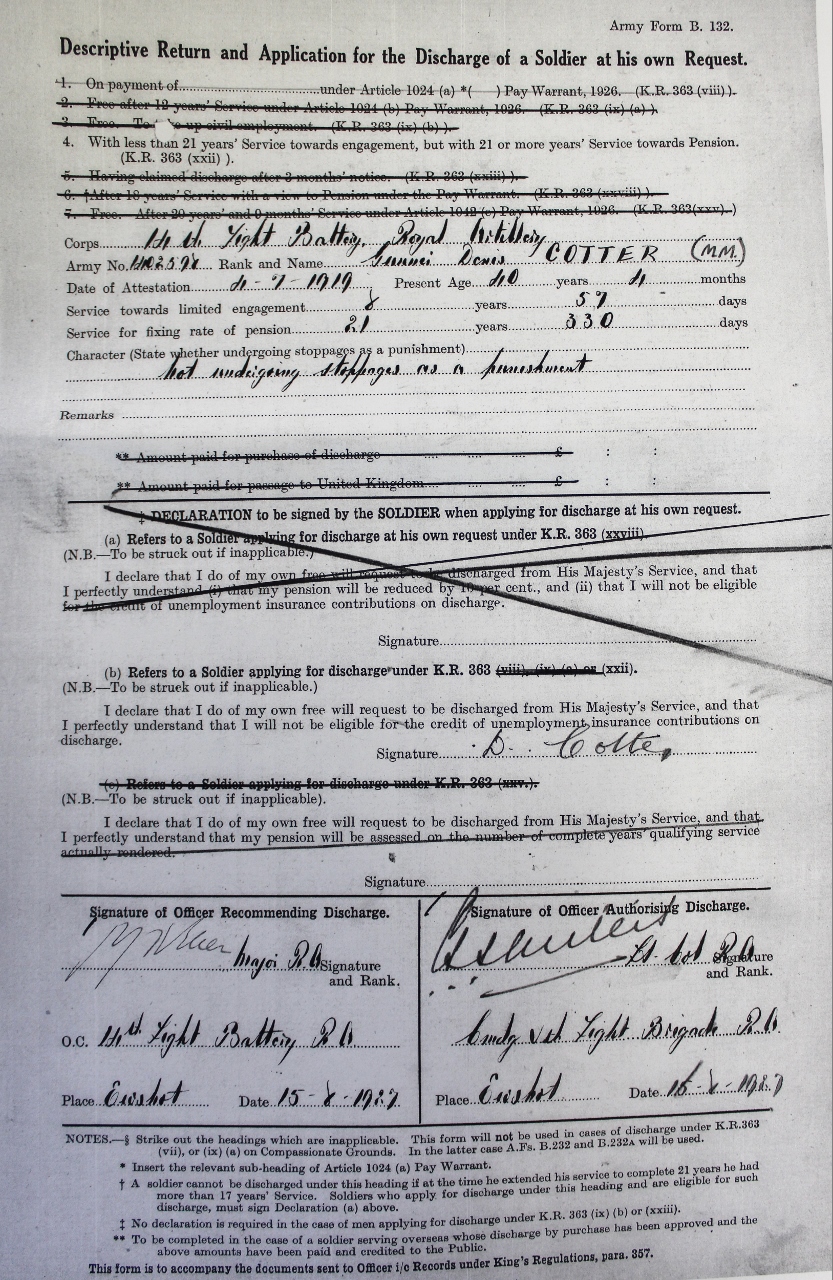 Army Form B. 132.
Descriptive Return and Application for the Discharge of a Soldier at his own Request.
1. On payment of....................under Article 1024 (a) *( ) Pay Warrant, 1926. (K.R. 363 (viii) ).
2. Free after 12 years' Service under Article 1024 (b) Pay Warrant, 1926. (K.R. 363 (ix) (a) ).
3. Free. To up civil employment. (K.R. 363 (ix) (b) ).
4. With less than 21 years' Service towards engagement, but with 21 or more years' Service towards Pension.
(K.R. 363 (xxii) ).
5. Having claimed discharge after 3 months' notice. (K.R. 363 (xxiii) ).
6. †After 18 years' Service with a view to Pension under the Pay Warrant. (K.R. 363 (xxviii) ).
7. Free. After 20 years' and 9 months' Service under Article 1042 (c) Pay Warrant, 1926. (K.R. 363(xxv).)
Corps 14th Light Battery, Royal Artillery
Army No. Rank and Name Gunner Denis COTTER (MM.)
Date of Attestation 4-7-1919 Present Age 40 years 4 months
Service towards limited engagement 8 years 57 days
Service for fixing rate of pension 21 years 330 days
Character (State whether undergoing stoppages as a punishment)
Not undergoing stoppages as a punishment
Remarks
** Amount paid for purchase of discharge .... .... .... £ : :
** Amount paid for passage to United Kingdom .... .... £ : :
‡ DECLARATION to be signed by the SOLDIER when applying for discharge at his own request.
(a) Refers to a Soldier applying for discharge at his own request under K.R. 363 (xxviii).
(N.B.—To be struck out if inapplicable.)
I declare that I do of my own free will request to be discharged from His Majesty's Service, and that
I perfectly understand (i) that my pension will be reduced by 10 per cent., and (ii) that I will not be eligible
for the credit of unemployment insurance contributions on discharge.
Signature
(b) Refers to a Soldier applying for discharge under K.R. 363 (viii), (ix) (a) or (xxii).
(N.B.—To be struck out if inapplicable.)
I declare that I do of my own free will request to be discharged from His Majesty's Service, and that
I perfectly understand that I will not be eligible for the credit of unemployment insurance contributions on
discharge.
Signature D. Cotter
(c) Refers to a Soldier applying for discharge under K.R. 363 (xxv.).
(N.B.—To be struck out if inapplicable).
I declare that I do of my own free will request to be discharged from His Majesty's Service, and that
I perfectly understand that my pension will be assessed on the number of complete years' qualifying service
actually rendered.
Signature
Signature of Officer Recommending Discharge.
Major R.A. Signature
and Rank.
O.C. 14th Light Battery R.A.
Place Ewshot Date 15-8-1927
Signature of Officer Authorising Discharge.
Lt. Col R.A. Signature
and Rank.
Cmdg Light Brigade R.A.
Place Ewshot Date 15-8-1927
NOTES.—§ Strike out the headings which are inapplicable. This form will not be used in cases of discharge under K.R.363
(vii), or (ix) (a) on Compassionate Grounds. In the latter case A.Fs. B.232 and B.232A will be used.
* Insert the relevant sub-heading of Article 1024 (a) Pay Warrant.
† A soldier cannot be discharged under this heading if at the time he extended his service to complete 21 years he had
more than 17 years' Service. Soldiers who apply for discharge under this heading and are eligible for such
discharge, must sign Declaration (a) above.
‡ No declaration is required in the case of men applying for discharge under K.R. 363 (ix) (b) or (xxiii).
** To be completed in the case of a soldier serving overseas whose discharge by purchase has been approved and the
above amounts have been paid and credited to the Public.
This form is to accompany the documents sent to Officer i/c Records under King's Regulations, para. 357.